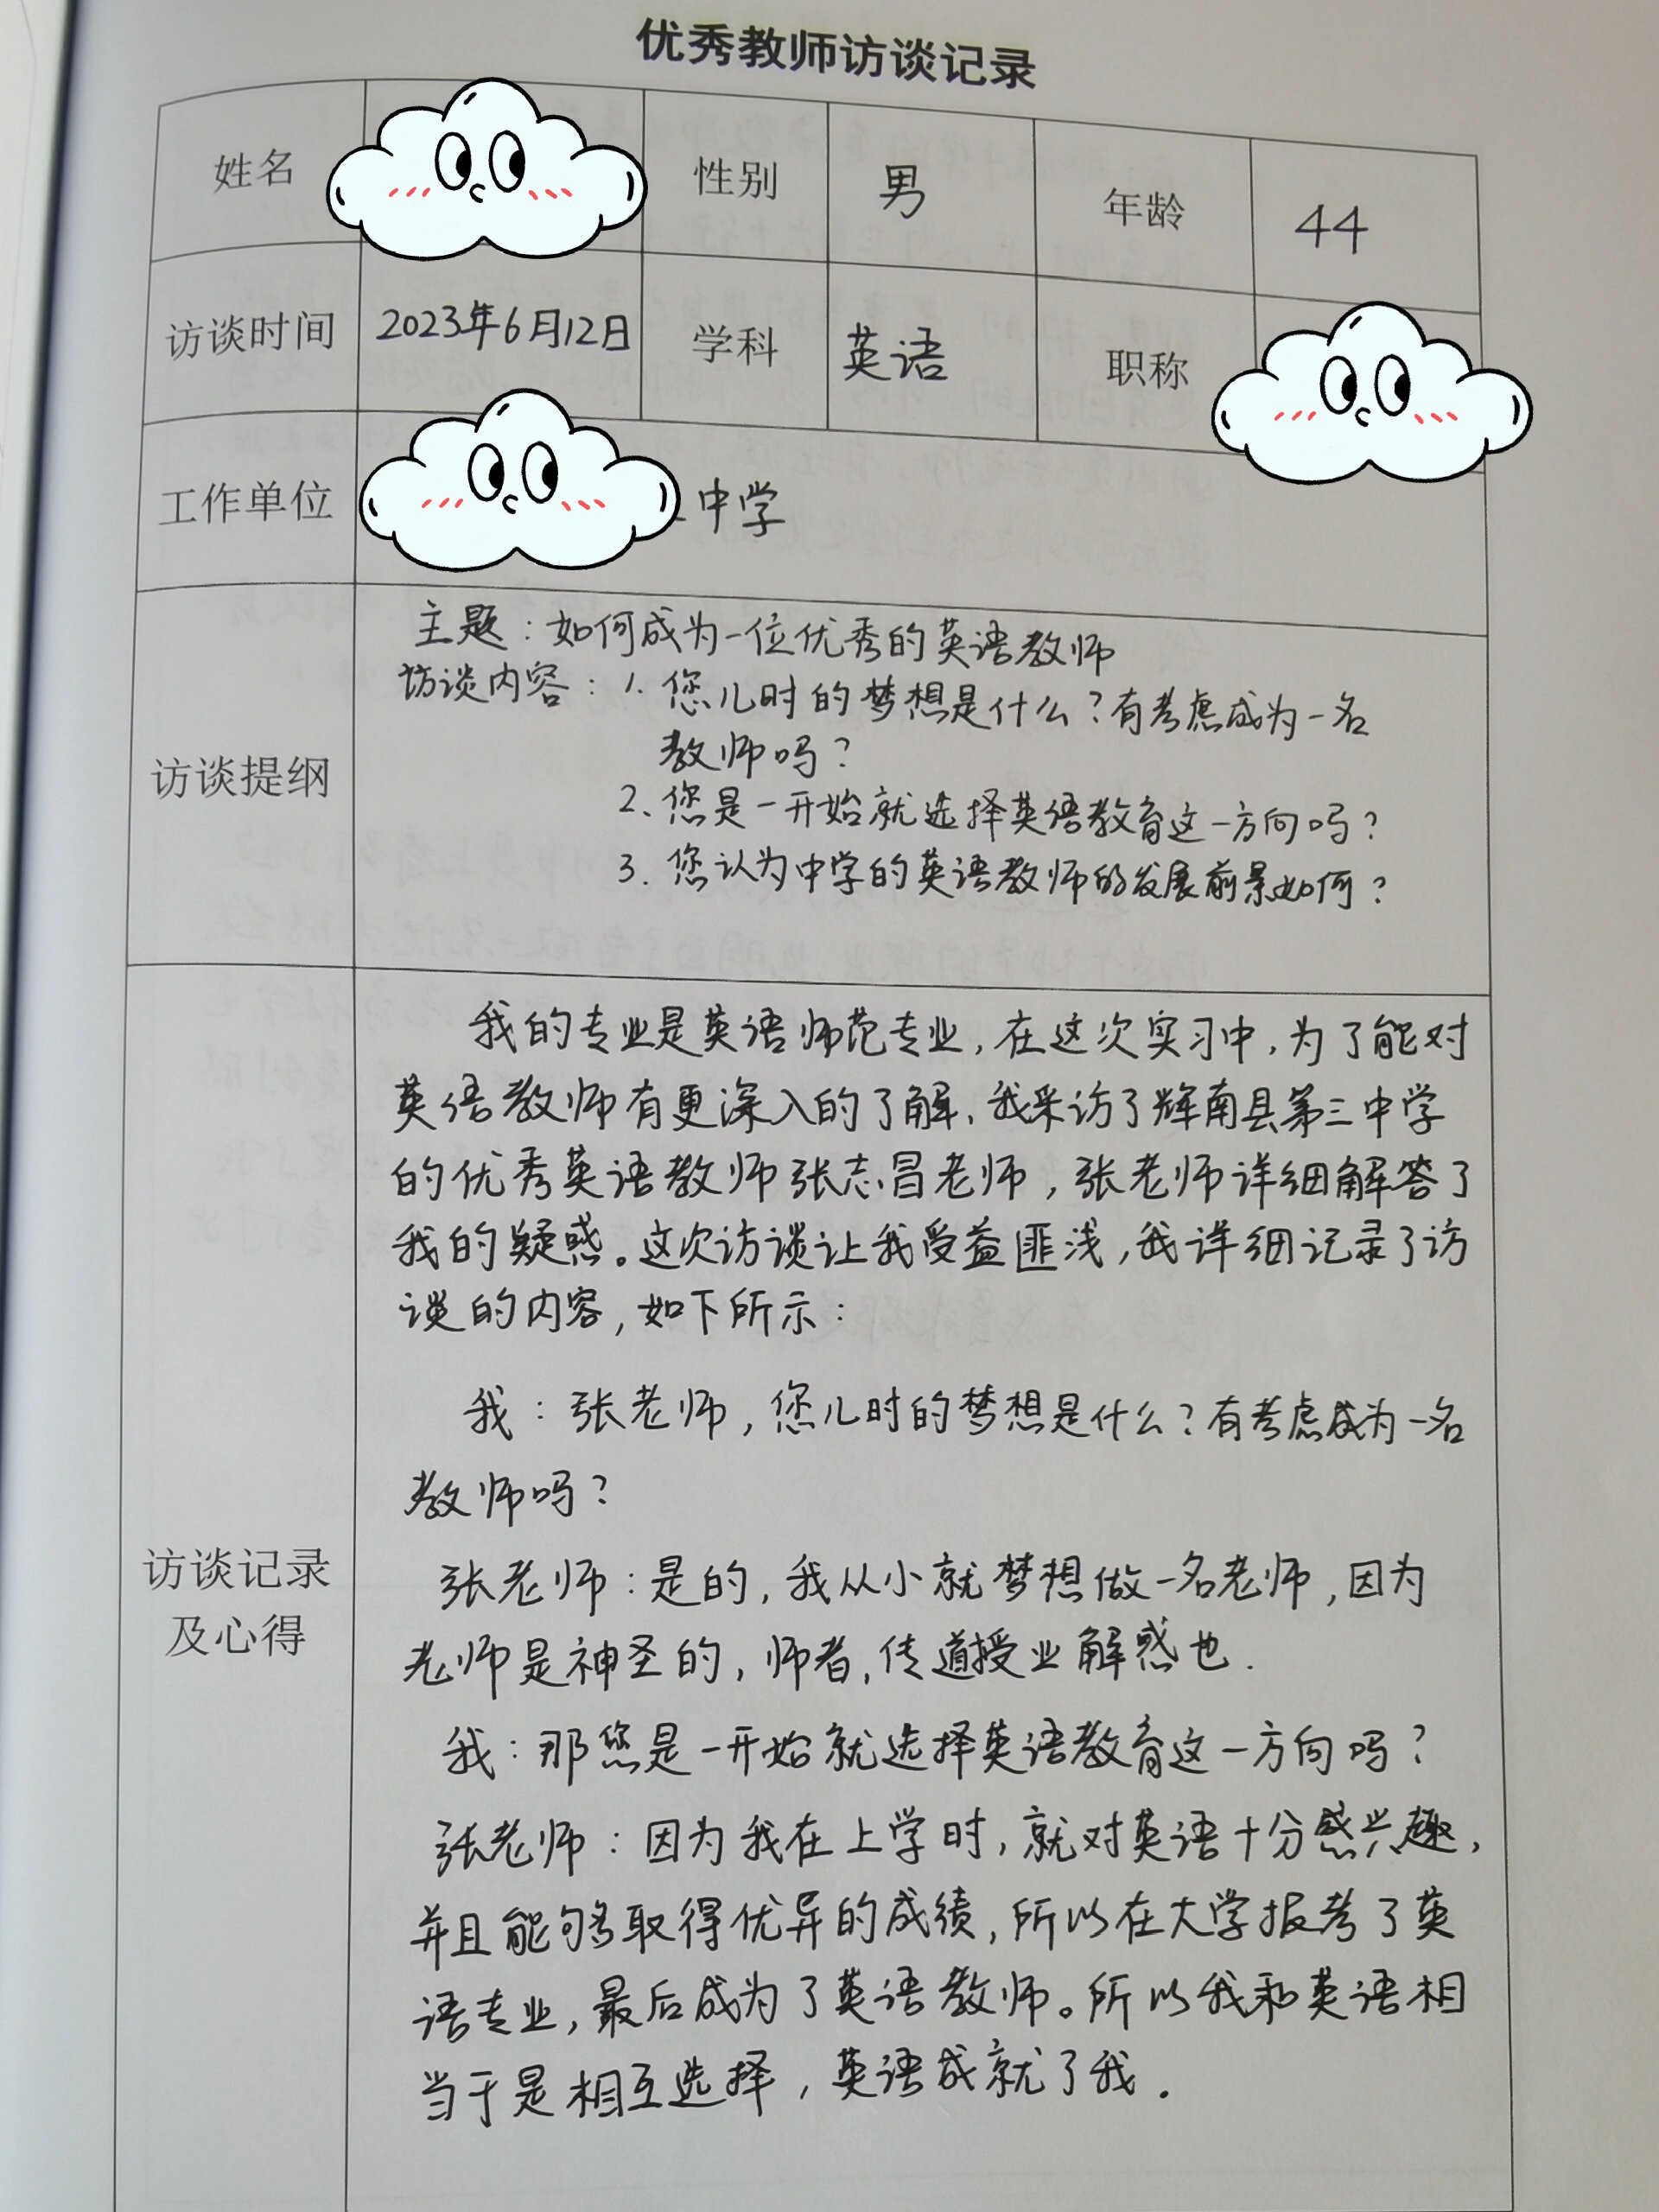 优秀教师访谈记录
姓名 性别 男 年龄 44
访谈时间 2023年6月12日 学科 英语 职称
工作单位 中学
访谈提纲
主题：如何成为一位优秀的英语教师
访谈内容：1. 您儿时的梦想是什么？有考虑成为一名
教师吗？
2、您是一开始就选择英语教育这一方向吗？
3. 您认为中学的英语教师的发展前景如何？
访谈记录
及心得
我的专业是英语师范专业，在这次实习中，为了能对
英语教师有更深入的了解，我采访了辉南县第三中学
的优秀英语教师张志昌老师，张老师详细解答了
我的疑惑。这次访谈让我受益匪浅，我详细记录了访
谈的内容，如下所示：
我：张老师，您儿时的梦想是什么？有考虑成为一名
教师吗？
张老师：是的，我从小就梦想做一名老师，因为
老师是神圣的，师者，传道授业解惑也.
我：那您是一开始就选择英语教育这一方向吗？
张老师：因为我在上学时，就对英语十分感兴趣，
并且能够取得优异的成绩，所以在大学报考了英
语专业，最后成为了英语教师。所以我和英语相
当于是相互选择，英语成就了我.